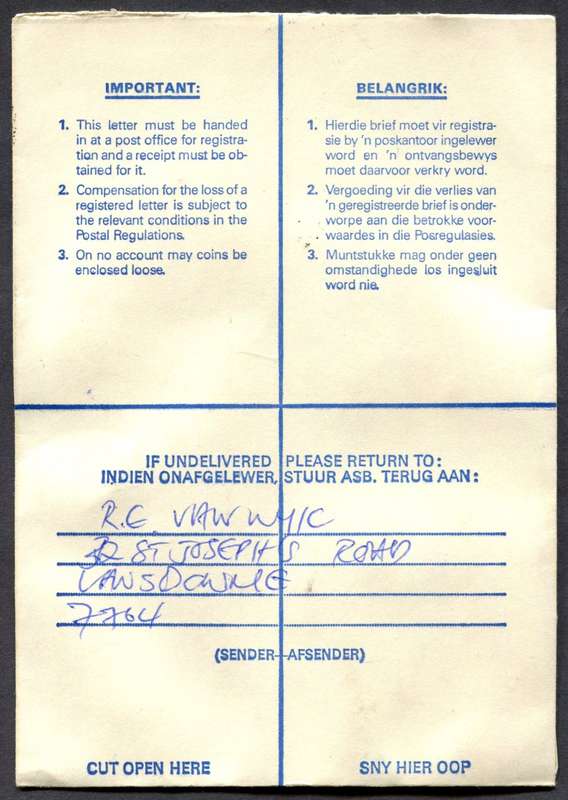 IMPORTANT:
1. This letter must be handed
in at a post office for registra-
tion and a receipt must be ob-
tained for it.
2. Compensation for the loss of a
registered letter is subject to
the relevant conditions in the
Postal Regulations.
3. On no account may coins be
enclosed loose.
BELANGRIK:
1. Hierdie brief moet vir registra-
sie by 'n poskantoor ingelewer
word en 'n ontvangsbewys
moet daarvoor verkry word.
2. Vergoeding vir die verlies van
'n geregistreerde brief is onder-
worpe aan die betrokke voor-
waardes in die Posregulasies.
3. Muntstukke mag onder geen
omstandighede los ingesluit
word nie.
IF UNDELIVERED PLEASE RETURN TO:
INDIEN ONAFGELEWER, STUUR ASB. TERUG AAN:
R.E. VAN WYK
32 ST JOSEPH'S ROAD
LANSDOWNE
7764
(SENDER–AFSENDER)
CUT OPEN HERE
SNY HIER OOP